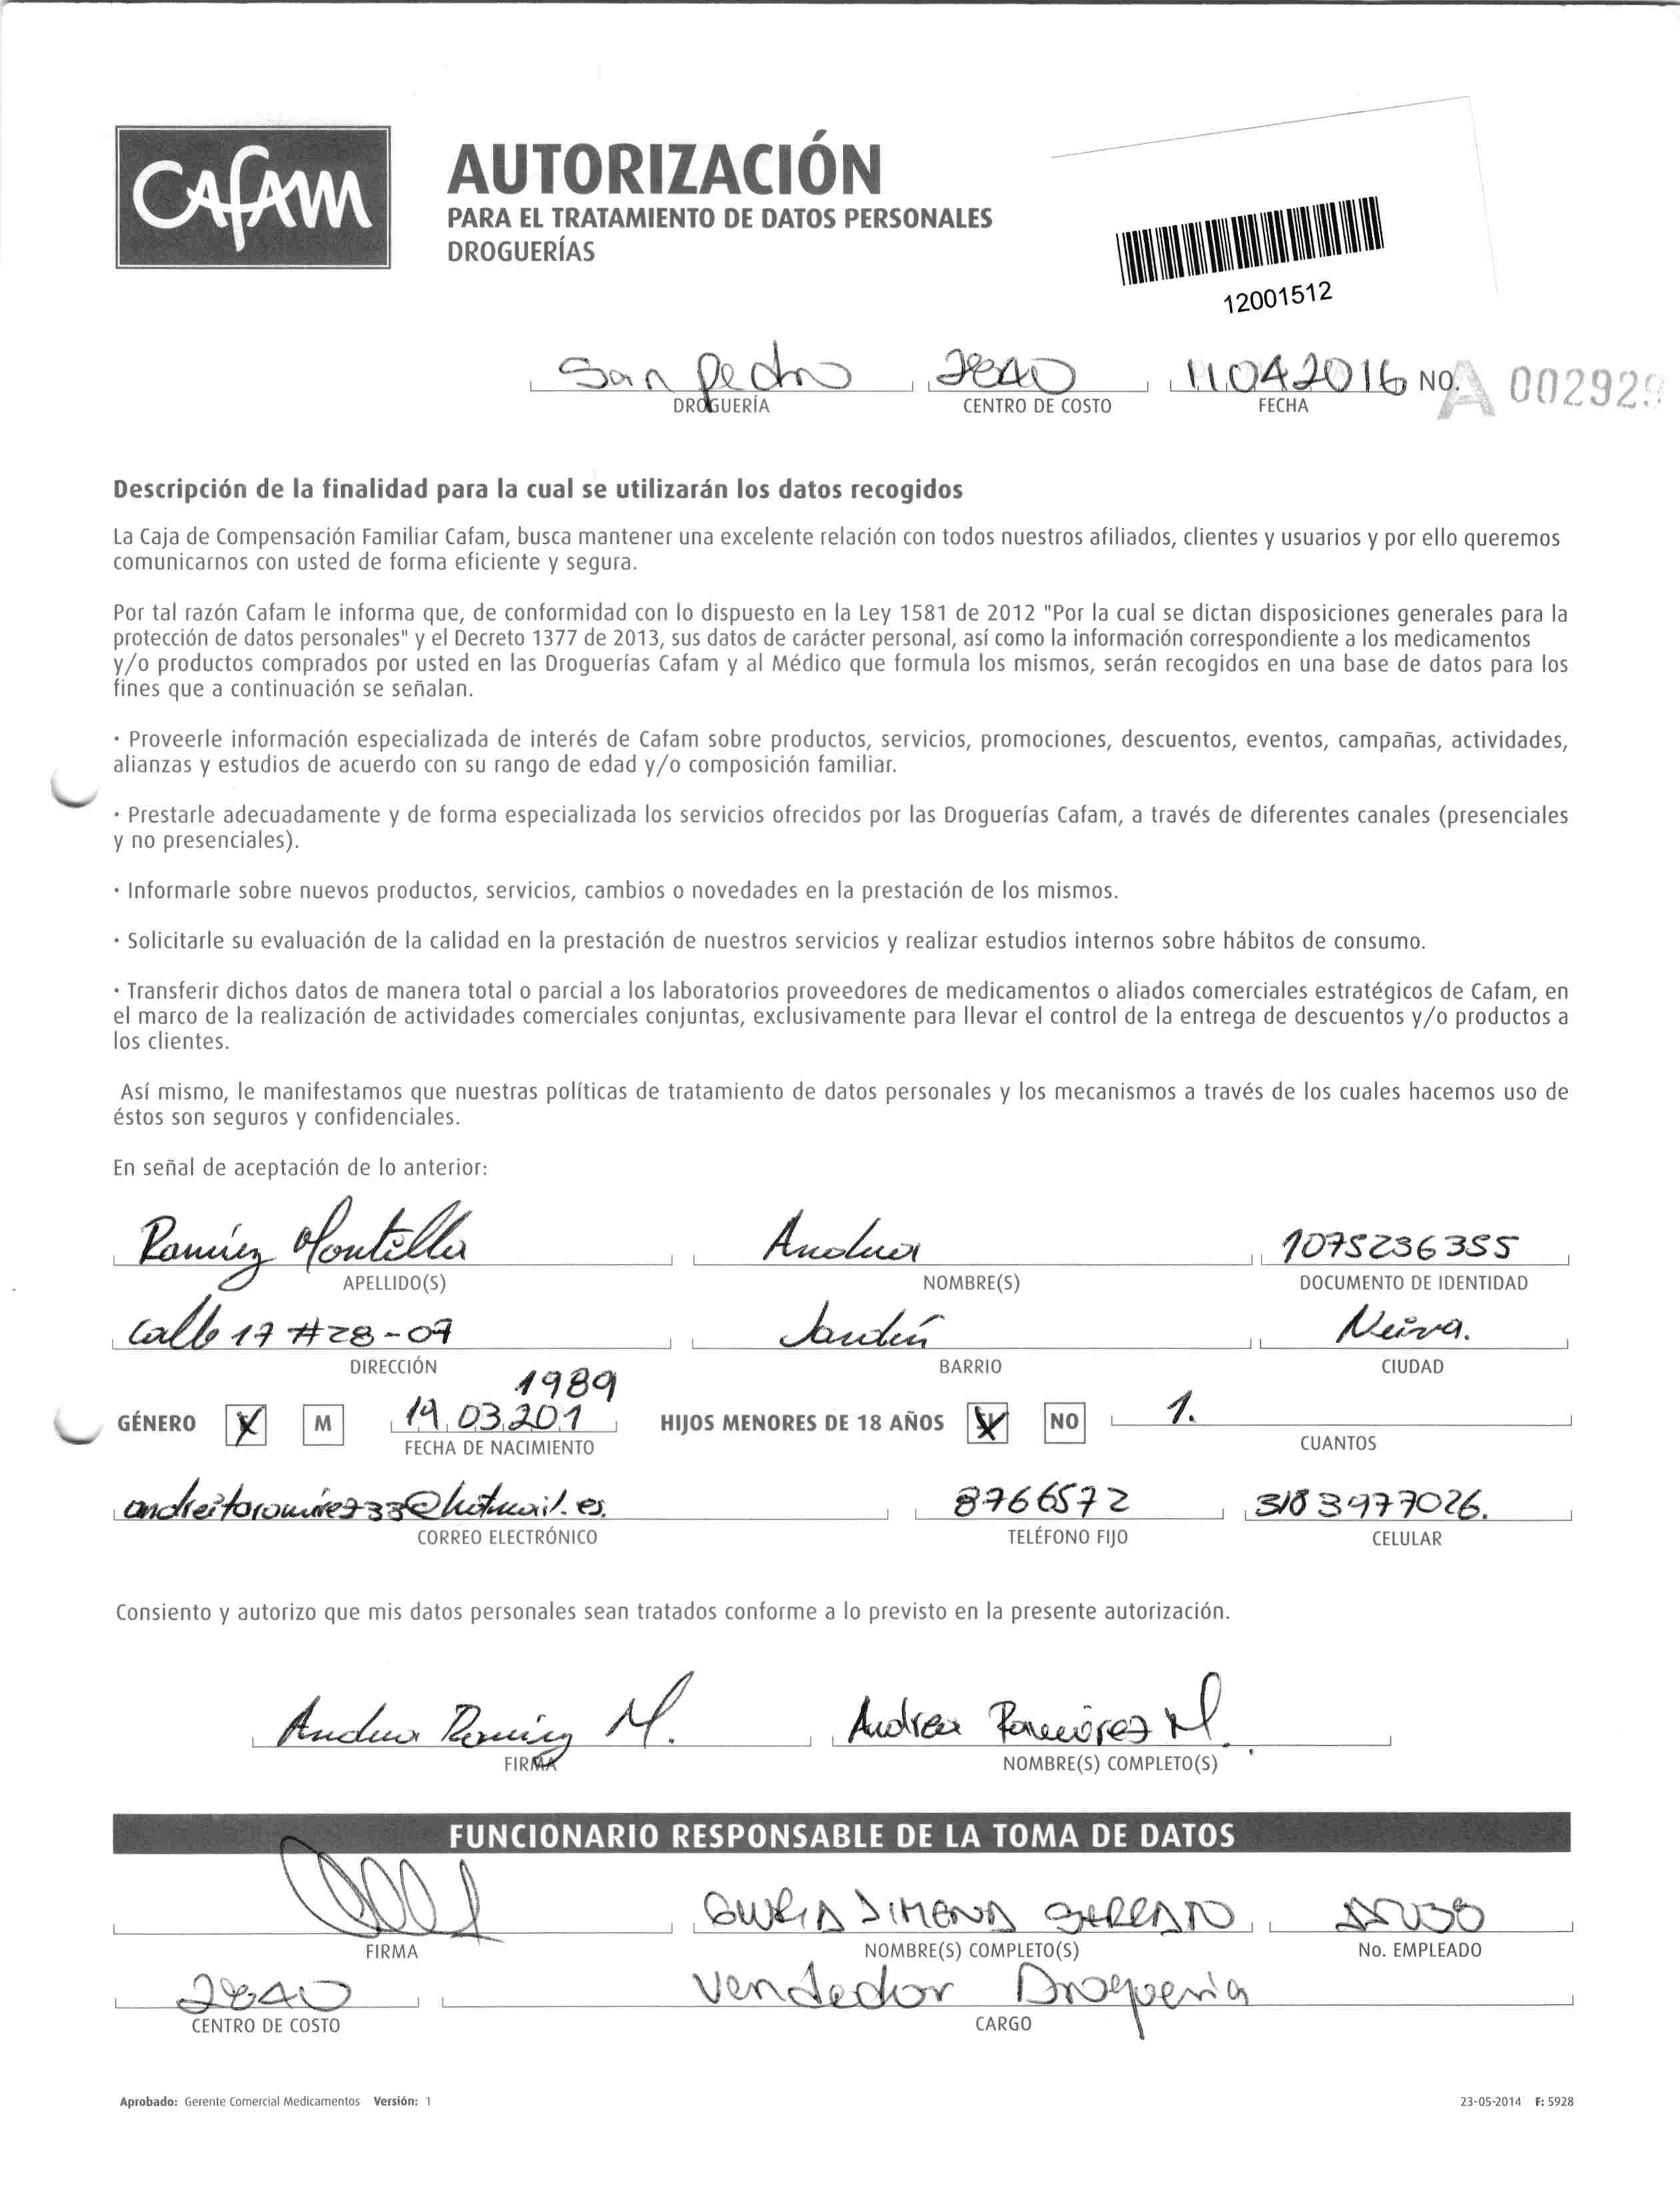 CAFAM
AUTORIZACIÓN
PARA EL TRATAMIENTO DE DATOS PERSONALES
DROGUERÍAS
12001512
San Pedro 2840 11042016 NO. A 002929
DROGUERÍA CENTRO DE COSTO FECHA
Descripción de la finalidad para la cual se utilizarán los datos recogidos
La Caja de Compensación Familiar Cafam, busca mantener una excelente relación con todos nuestros afiliados, clientes y usuarios y por ello queremos
comunicarnos con usted de forma eficiente y segura.
Por tal razón Cafam le informa que, de conformidad con lo dispuesto en la Ley 1581 de 2012 "Por la cual se dictan disposiciones generales para la
protección de datos personales" y el Decreto 1377 de 2013, sus datos de carácter personal, así como la información correspondiente a los medicamentos
y/o productos comprados por usted en las Droguerías Cafam y al Médico que formula los mismos, serán recogidos en una base de datos para los
fines que a continuación se señalan.
· Proveerle información especializada de interés de Cafam sobre productos, servicios, promociones, descuentos, eventos, campañas, actividades,
alianzas y estudios de acuerdo con su rango de edad y/o composición familiar.
· Prestarle adecuadamente y de forma especializada los servicios ofrecidos por las Droguerías Cafam, a través de diferentes canales (presenciales
y no presenciales).
· Informarle sobre nuevos productos, servicios, cambios o novedades en la prestación de los mismos.
· Solicitarle su evaluación de la calidad en la prestación de nuestros servicios y realizar estudios internos sobre hábitos de consumo.
· Transferir dichos datos de manera total o parcial a los laboratorios proveedores de medicamentos o aliados comerciales estratégicos de Cafam, en
el marco de la realización de actividades comerciales conjuntas, exclusivamente para llevar el control de la entrega de descuentos y/o productos a
los clientes.
Así mismo, le manifestamos que nuestras políticas de tratamiento de datos personales y los mecanismos a través de los cuales hacemos uso de
éstos son seguros y confidenciales.
En señal de aceptación de lo anterior:
Ramírez Montilla Andrea 1075236355
APELLIDO(S) NOMBRE(S) DOCUMENTO DE IDENTIDAD
Calle 17 #28-07 Jardín Neiva.
DIRECCIÓN BARRIO CIUDAD
1989
GÉNERO X M 19 03 201 HIJOS MENORES DE 18 AÑOS X NO 1.
FECHA DE NACIMIENTO CUANTOS
andreitaramirez33@hotmail.es. 8766572 3183977026.
CORREO ELECTRÓNICO TELÉFONO FIJO CELULAR
Consiento y autorizo que mis datos personales sean tratados conforme a lo previsto en la presente autorización.
Andrea Ramírez M. Andrea Ramírez M.
FIRMA NOMBRE(S) COMPLETO(S)
FUNCIONARIO RESPONSABLE DE LA TOMA DE DATOS
JIMENA
FIRMA NOMBRE(S) COMPLETO(S) No. EMPLEADO
2840 Vendedor Droguería
CENTRO DE COSTO CARGO
Aprobado: Gerente Comercial Medicamentos Versión: 1 23-05-2014 F: 5928